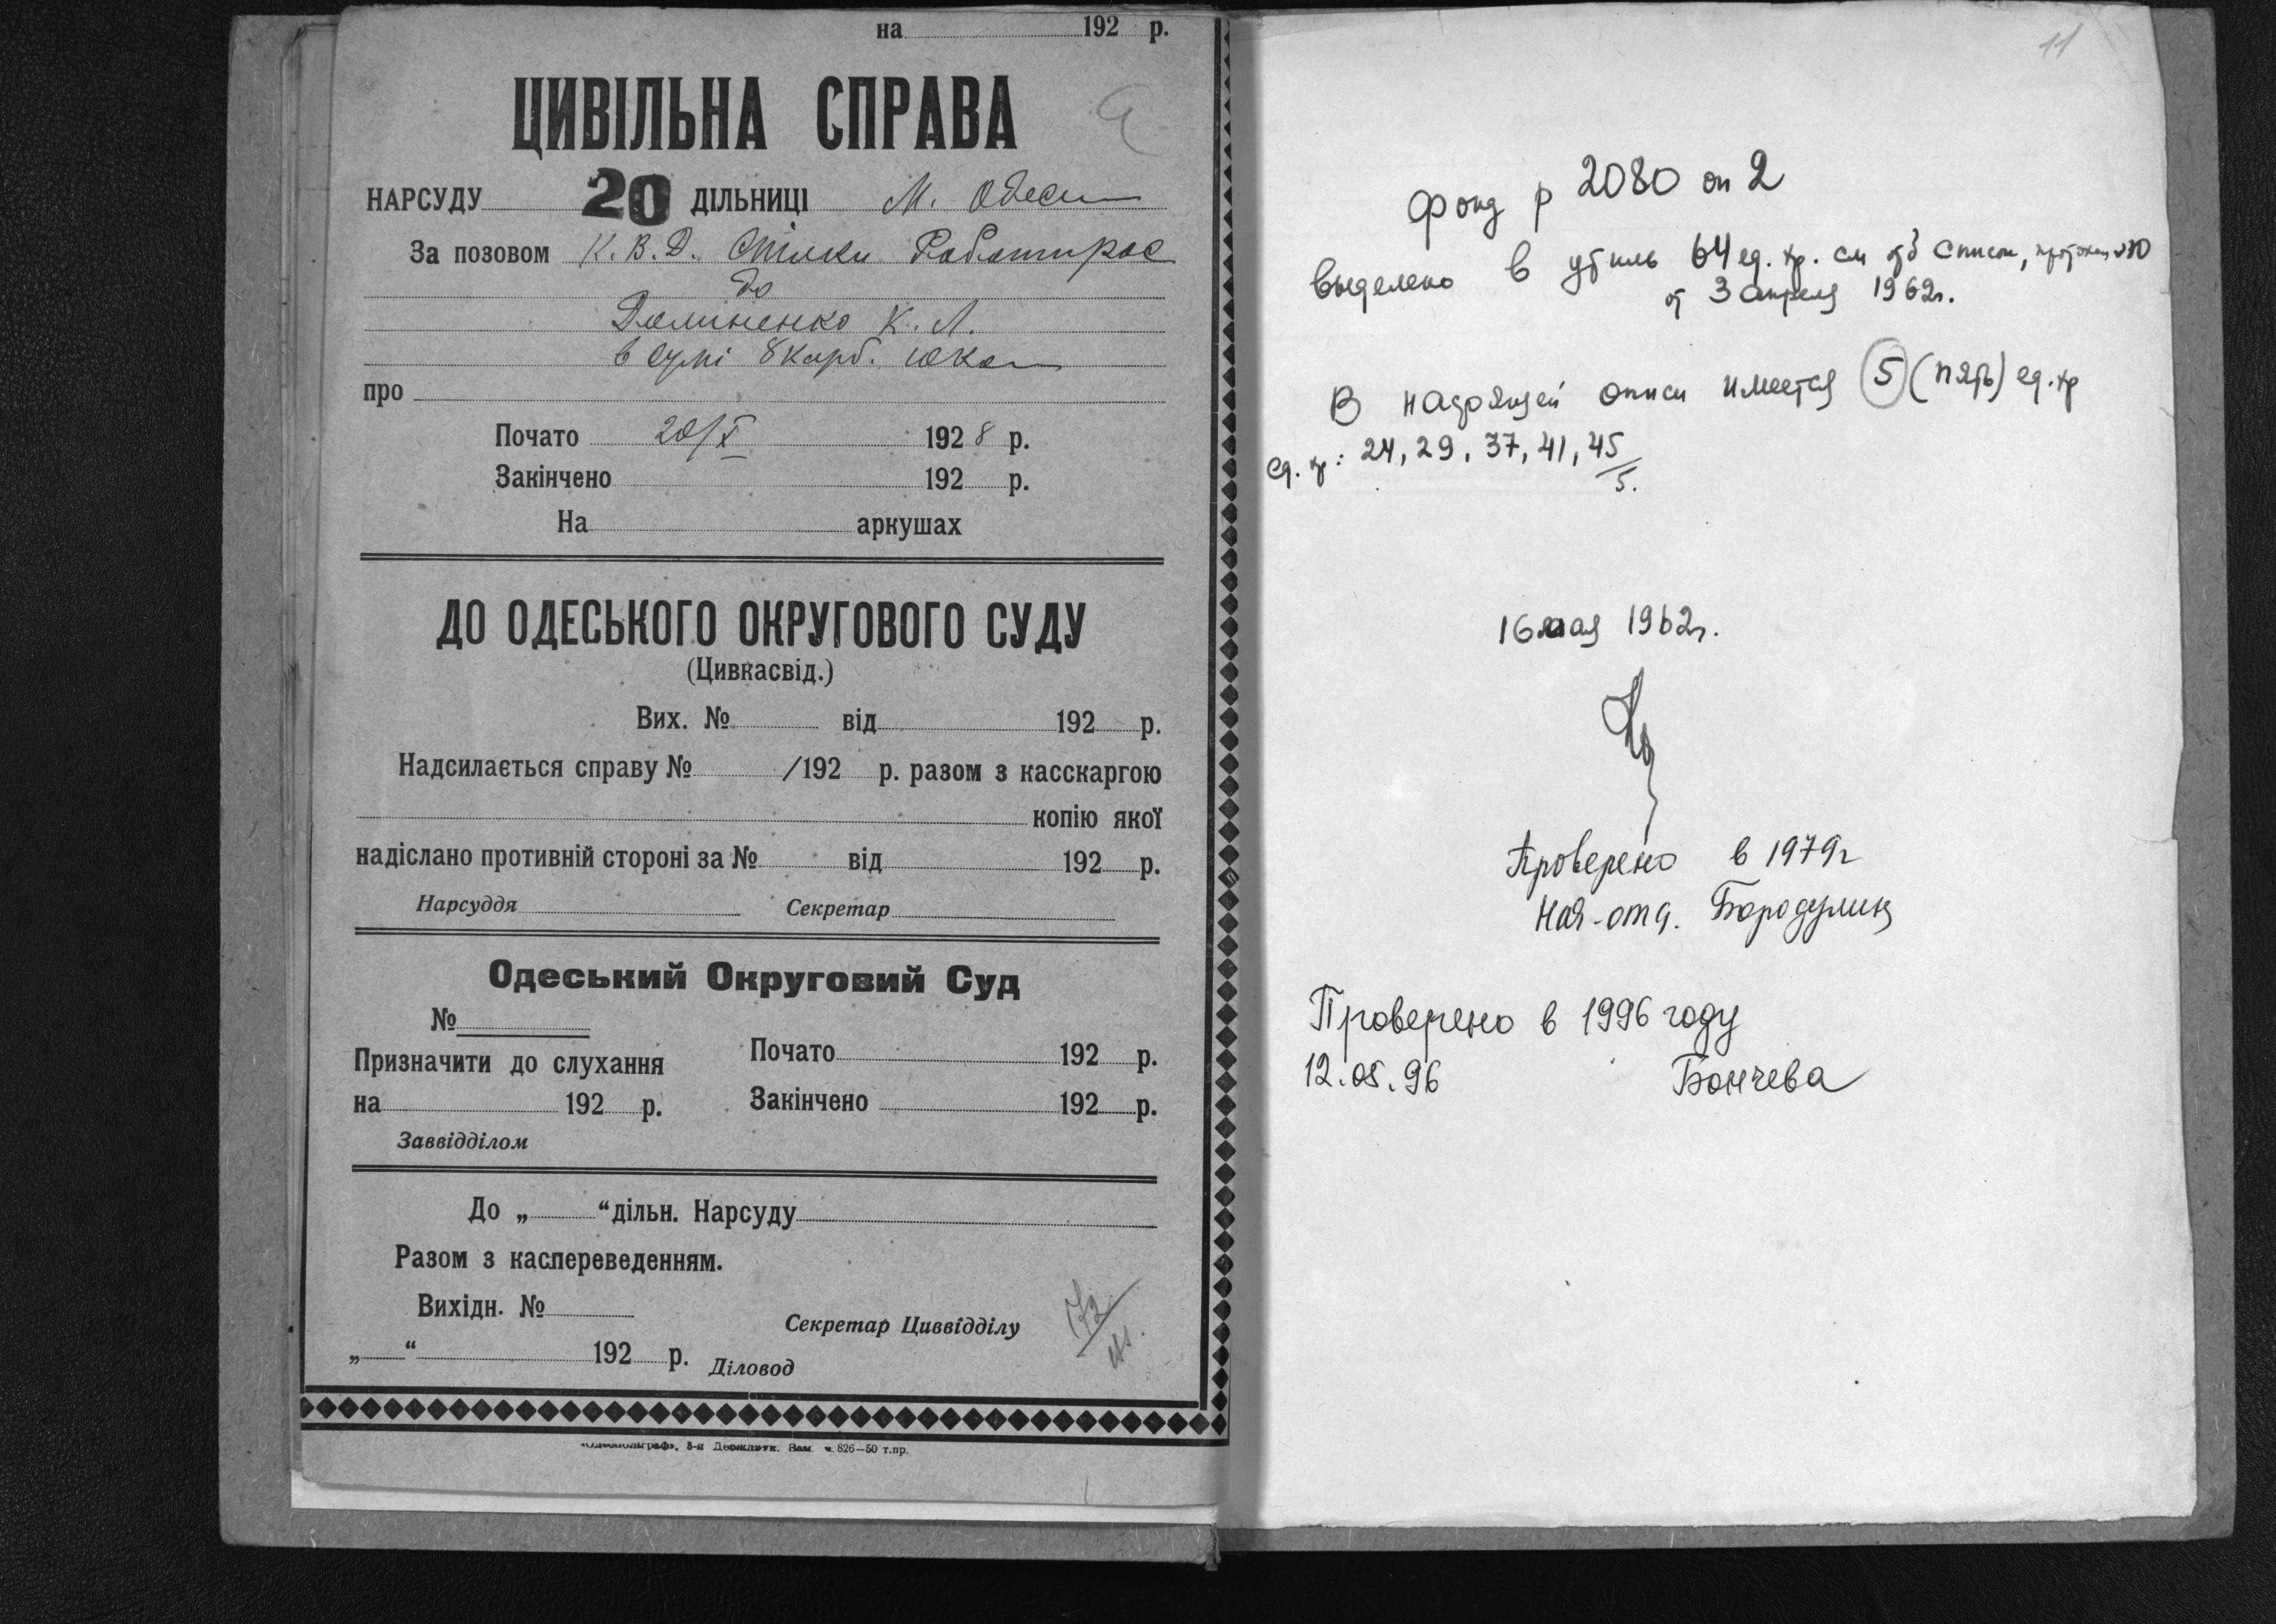 на 192 р.
ЦИВІЛЬНА СПРАВА
НАРСУДУ 20 ДІЛЬНИЦІ м. Одеси
За позовом К.В.Д. Спілки Робітпрос
до
К. Л.
в сумі 8 карб.
про
Почато 20/X 1928 р.
Закінчено 192 р.
На аркушах
ДО ОДЕСЬКОГО ОКРУГОВОГО СУДУ
(Цивкасвід.)
Вих. № від 192 р.
Надсилається справу № /192 р. разом з касскаргою
копію якої
надіслано противній стороні за № від 192 р.
Нарсуддя Секретар
Одеський Округовий Суд
№
Призначити до слухання Почато 192 р.
на 192 р. Закінчено 192 р.
Заввідділом
До „ “ дільн. Нарсуду
Разом з каспереведенням.
Вихідн. №
Секретар Циввідділу
„ “ 192 р. Діловод
826—50 т.пр.
11
Фонд р 2080 оп 2
выделено в утиль 64 ед. хр. см
от 3 апреля 1962г.
В настоящей описи имеется 5 (пять) ед. хр
ед. хр: 24, 29, 37, 41, 45
5.
16 мая 1962г.
Проверено в 1979г
Нач-отд.
Проверено в 1996 году
12.05.96 Бончева